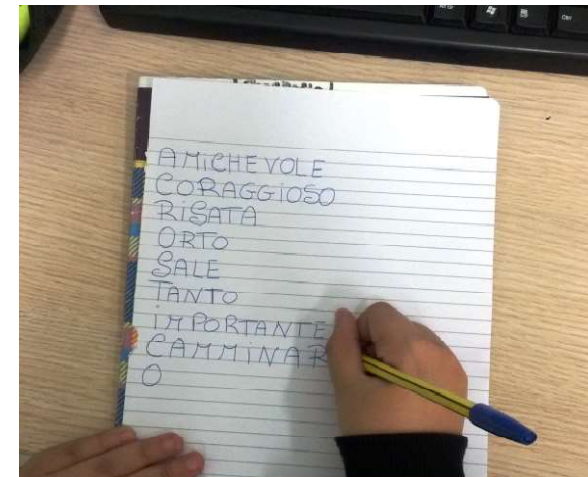 AMiCHEVOLE
CORAGGiOSO
RiSATA
ORTO
SALE
TANTO
iMPORTANTE
CAMMiNAR
O